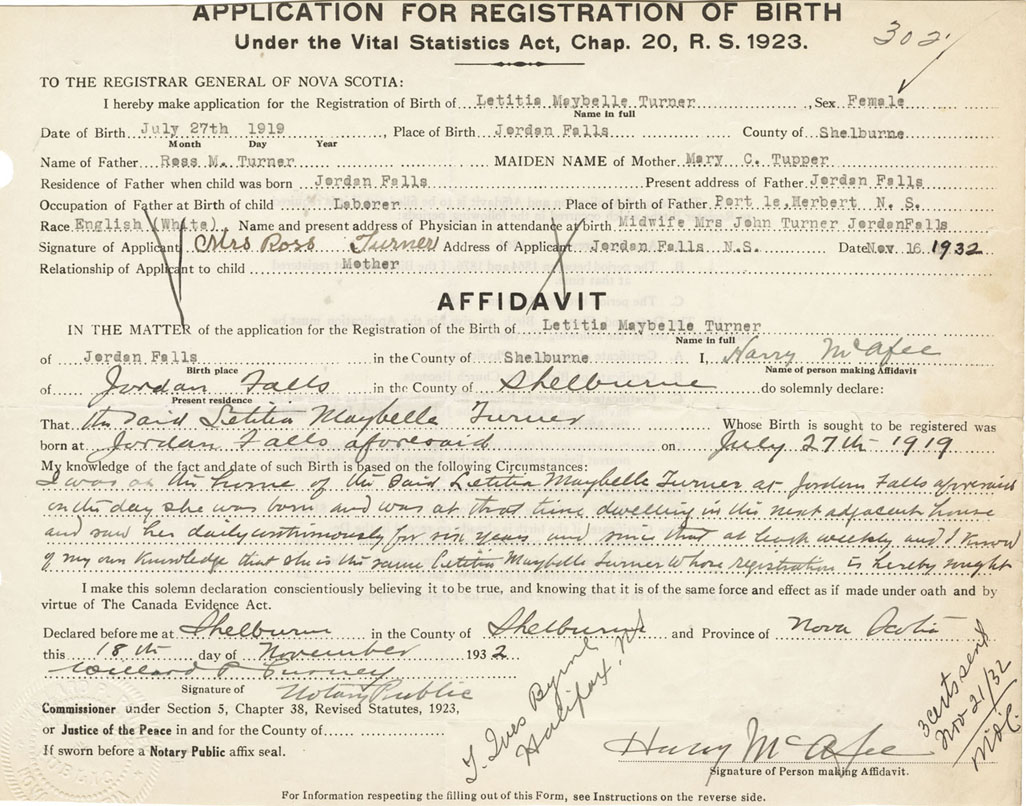 APPLICATION FOR REGISTRATION OF BIRTH
Under the Vital Statistics Act, Chap. 20, R. S. 1923.
302
TO THE REGISTRAR GENERAL OF NOVA SCOTIA:
I hereby make application for the Registration of Birth of Letitia Maybelle Turner, Sex Female
Name in full
Date of Birth July 27th 1919, Place of Birth Jordan Falls County of Shelburne
Month Day Year
Name of Father Ross M. Turner MAIDEN NAME of Mother Mary C. Tupper
Residence of Father when child was born Jordan Falls Present address of Father Jordan Falls
Occupation of Father at Birth of child Laborer Place of birth of Father Port le Herbert N. S.
Race English (White). Name and present address of Physician in attendance at birth. Midwife Mrs John Turner JordanFalls
Signature of Applicant Mrs Ross Turner Address of Applicant Jordan Falls N.S. Date Nov. 16 1932
Relationship of Applicant to child Mother
AFFIDAVIT
IN THE MATTER of the application for the Registration of the Birth of Letitia Maybelle Turner
Name in full
of Jordan Falls in the County of Shelburne I, Harry McAfee
Birth place Name of person making Affidavit
of Jordan Falls in the County of Shelburne do solemnly declare:
Present residence
That the said Letitia Maybelle Turner Whose Birth is sought to be registered was
born at Jordan Falls aforesaid on July 27th 1919
My knowledge of the fact and date of such Birth is based on the following Circumstances:
I was at the home of the said Letitia Maybelle Turner at Jordan Falls aforesaid
on the day she was born and was at that time dwelling in the next adjacent house
and saw her daily continuously for six years and since that at least weekly and I know
of my own knowledge that she is the same Letitia Maybelle Turner whose registration is hereby sought
I make this solemn declaration conscientiously believing it to be true, and knowing that it is of the same force and effect as if made under oath and by
virtue of The Canada Evidence Act.
Declared before me at Shelburne in the County of Shelburne and Province of Nova Scotia
this 18th day of November 1932
Willard P
Signature of Notary Public
Commissioner under Section 5, Chapter 38, Revised Statutes, 1923,
or Justice of the Peace in and for the County of
If sworn before a Notary Public affix seal.
J. Ives Byrne
Halifax, NS
3 certs sent
Nov 21/32
Harry McAfee
Signature of Person making Affidavit.
For Information respecting the filling out of this Form, see Instructions on the reverse side.